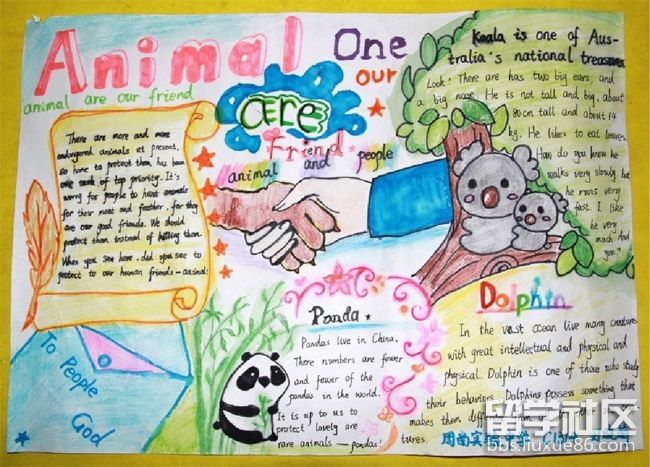 Animal
One
our
are
Friend
animal and people
animal are our friend
There are more and more
endangered animals at present,
so hone to protect them, has been
one rank of top priority. It's
worng for people to hunt animals
for their meat and feather, for they
are our good friends. We should
protect them instead of killing them.
When you see here, did you see to
protect to our human friends - animal!
To People
God
Koala is one of Aus-
tralia's national treasures
Look! There are has two big ears and
a big nose. He is not tall and big, about
80cm tall and about 14
kg. He likes to eat leaves.
How do you know he
walks very slowly but
he runs very
fast. I like
he very
much. And
you?
Panda
Pandas live in China.
There numbers are fewer
and fewer of the
pandas in the world.
It is up to us to
protect lovely are
rare animals — pandas!
Dolphin
In the vast ocean live many creatures
with great intellectual and physical and
physical. Dolphin is one of those who study
their behaviors. Dolphins possess something that
makes them different
tures.
留学社区
bbs.liuxue86.com